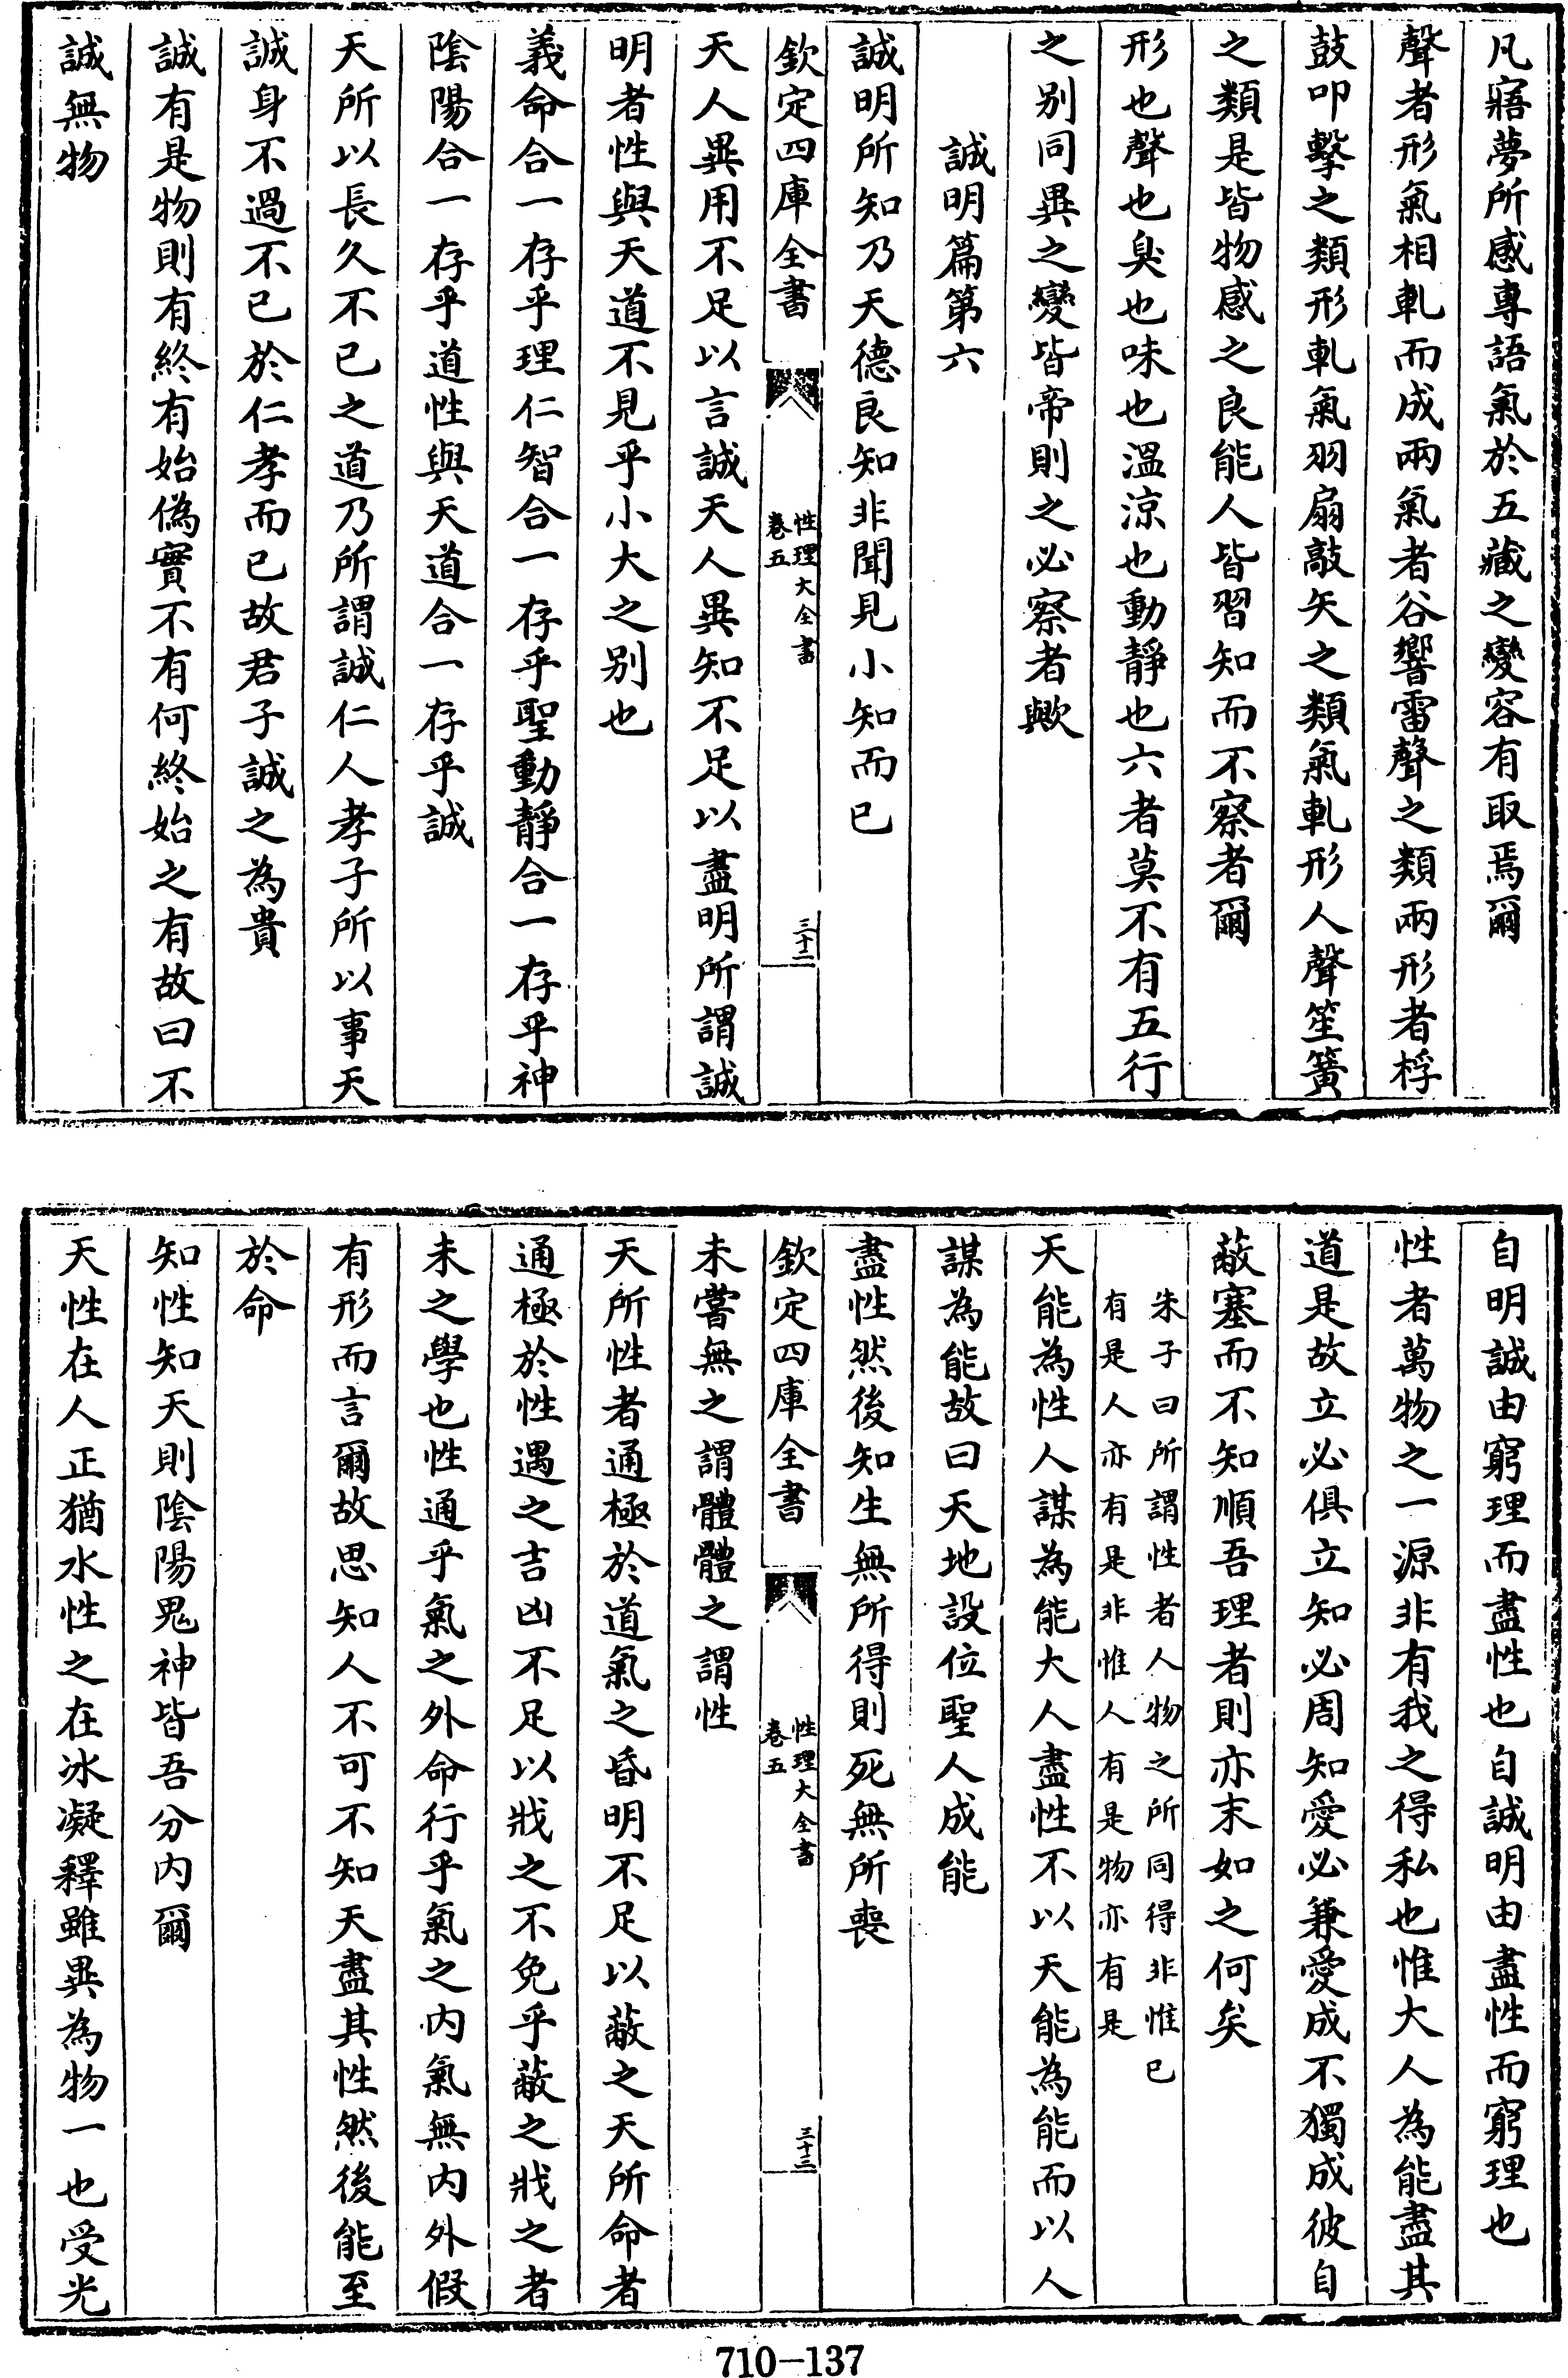 凡寤夢所感專語氣於五藏之變容有取焉爾
聲者形氣相軋而成兩氣者谷響雷聲之類兩形者桴
鼓叩擊之類形軋氣羽扇敲矢之類氣軋形人聲笙簧
之類是皆物感之良能人皆習知而不察者爾
形也聲也臭也味也溫涼也動靜也六者莫不有五行
之别同異之變皆帝則之必察者歟
誠明篇第六
誠明所知乃天德良知非聞見小知而已
欽定四庫全書
性理大全書
卷五
三十二
天人異用不足以言誠天人異知不足以盡明所謂誠
明者性與天道不見乎小大之别也
義命合一存乎理仁智合一存乎聖動靜合一存乎神
陰陽合一存乎道性與天道合一存乎誠
天所以長久不已之道乃所謂誠仁人孝子所以事天
誠身不過不已於仁孝而已故君子誠之為貴
誠有是物則有終有始偽實不有何終始之有故曰不
誠無物
自明誠由窮理而盡性也自誠明由盡性而窮理也
性者萬物之一源非有我之得私也惟大人為能盡其
道是故立必俱立知必周知愛必兼愛成不獨成彼自
蔽塞而不知順吾理者則亦末如之何矣
朱子曰所謂性者人物之所同得非惟已
有是人亦有是非惟人有是物亦有是
天能為性人謀為能大人盡性不以天能為能而以人
謀為能故曰天地設位聖人成能
盡性然後知生無所得則死無所喪
欽定四庫全書
性理大全書
卷五
三十三
未嘗無之謂體體之謂性
天所性者通極於道氣之昏明不足以蔽之天所命者
通極於性遇之吉凶不足以戕之不免乎蔽之戕之者
未之學也性通乎氣之外命行乎氣之内氣無内外假
有形而言爾故思知人不可不知天盡其性然後能至
於命
知性知天則陰陽鬼神皆吾分内爾
天性在人正猶水性之在冰凝釋雖異為物一也受光
710-137